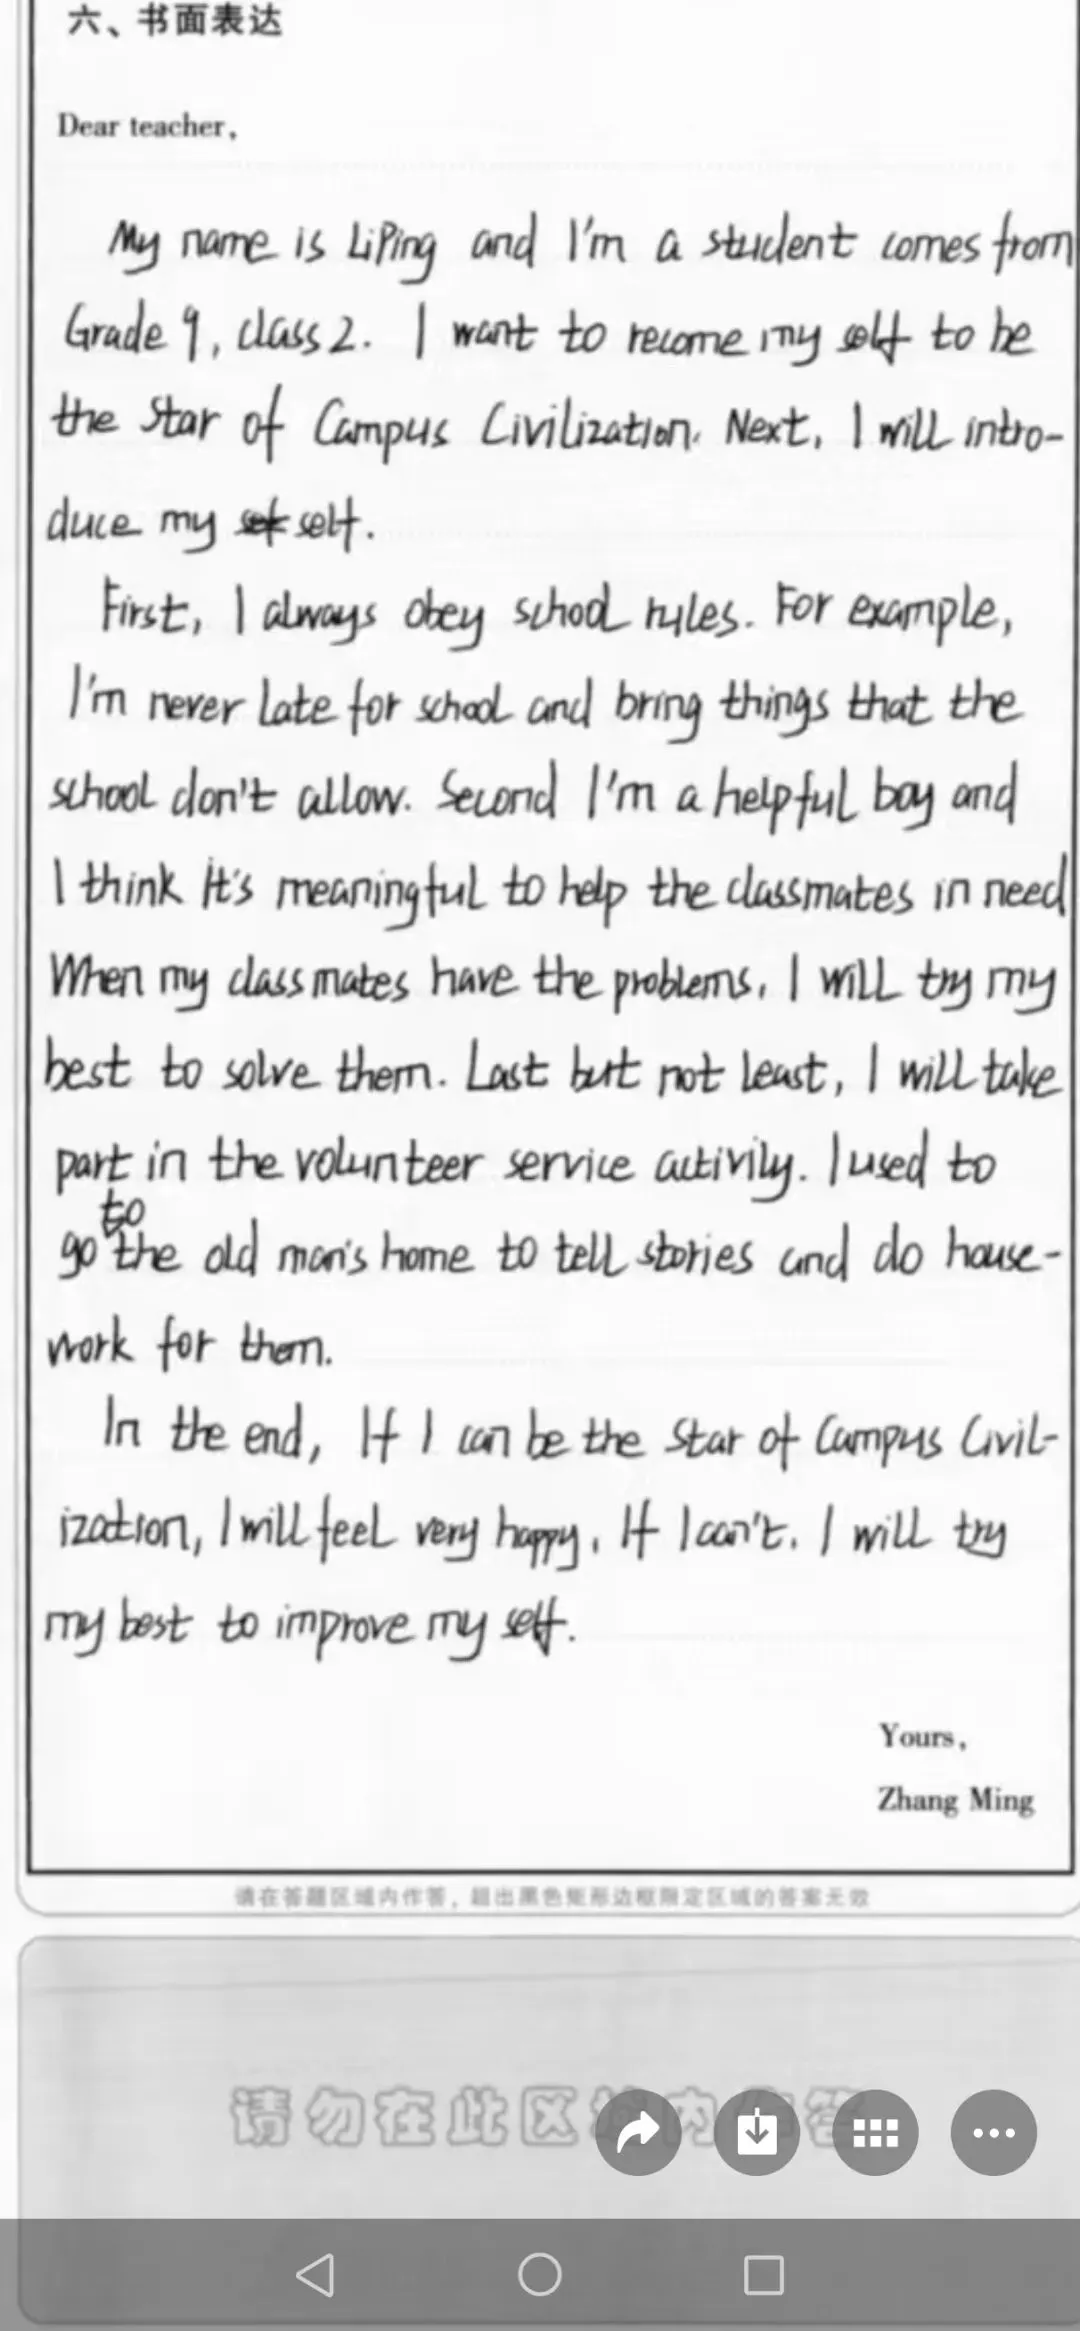 六、书面表达
Dear teacher,
My name is LiPing and I'm a student comes from
Grade 9, class 2. I want to recome my self to be
the Star of Campus Civilization. Next, I will intro-
duce my self.
First, I always obey school rules. For example,
I'm never late for school and bring things that the
school don't allow. Second I'm a helpful boy and
I think It's meaningful to help the classmates in need
When my classmates have the problems, I will try my
best to solve them. Last but not least, I will take
part in the volunteer service activily. I used to
go to the old man's home to tell stories and do house-
work for them.
In the end, If I can be the Star of Campus Civil-
ization, I will feel very happy, If I can't, I will try
my best to improve my self.
Yours,
Zhang Ming
请在答题区域内作答，超出黑色矩形边框限定区域的答案无效
请勿在此区域内作答